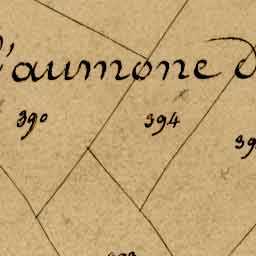 l'aumone
390
394